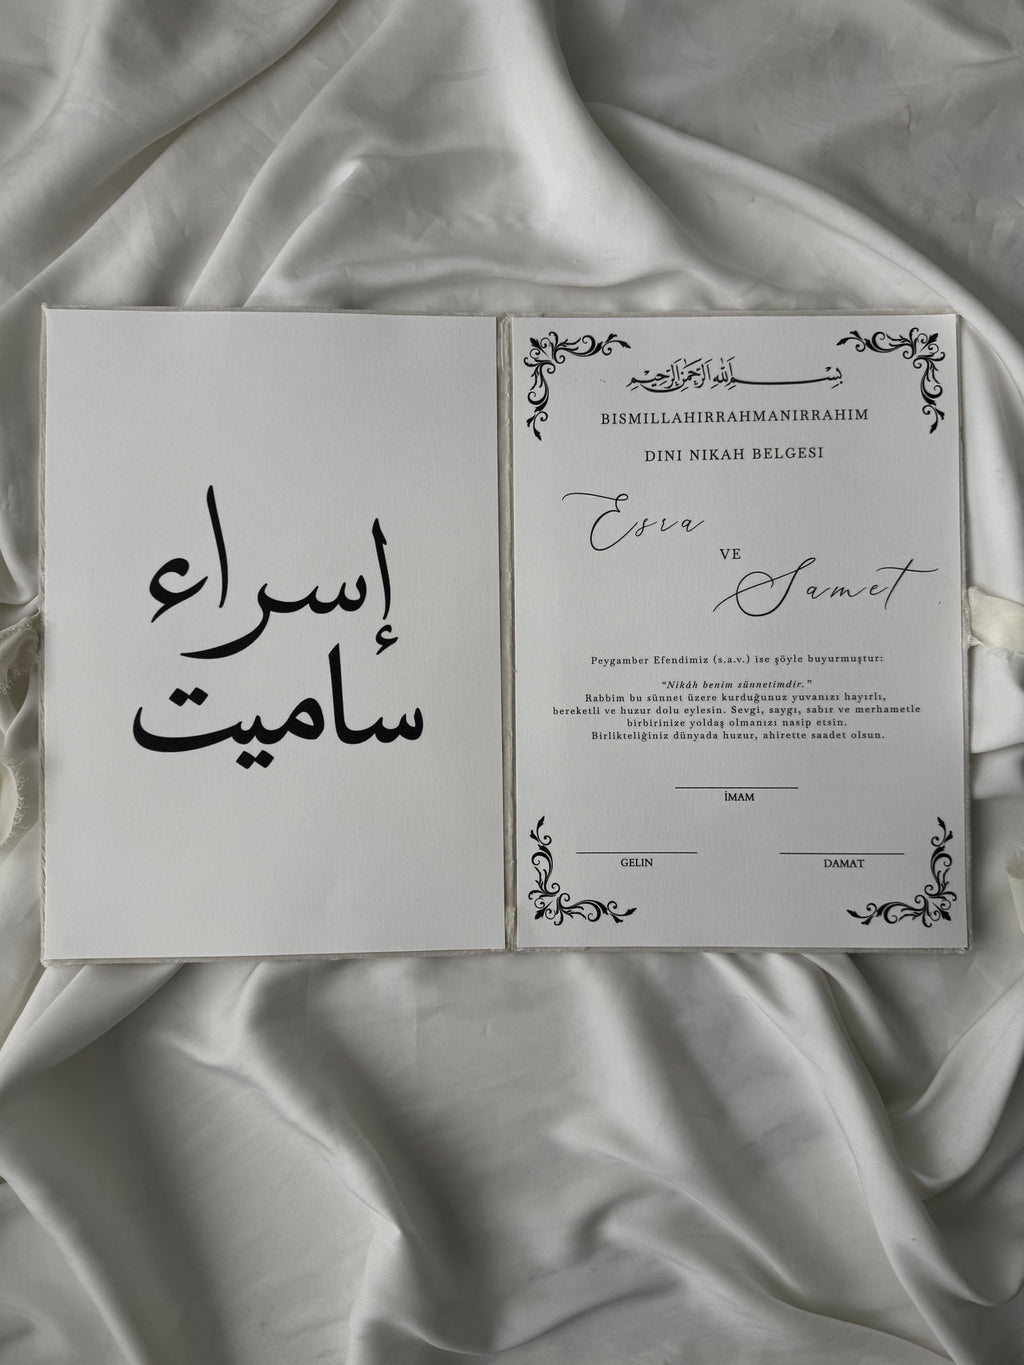 إسراء
ساميت
بِسْمِ اللّٰهِ الرَّحْمٰنِ الرَّحِيمِ
BISMILLAHIRRAHMANIRRAHIM
DINI NIKAH BELGESI
Esra
VE
Samet
Peygamber Efendimiz (s.a.v.) ise şöyle buyurmuştur:
“Nikâh benim sünnetimdir.”
Rabbim bu sünnet üzere kurduğunuz yuvanızı hayırlı,
bereketli ve huzur dolu eylesin. Sevgi, saygı, sabır ve merhametle
birbirinize yoldaş olmanızı nasip etsin.
Birlikteliğiniz dünyada huzur, ahirette saadet olsun.
İMAM
GELIN
DAMAT